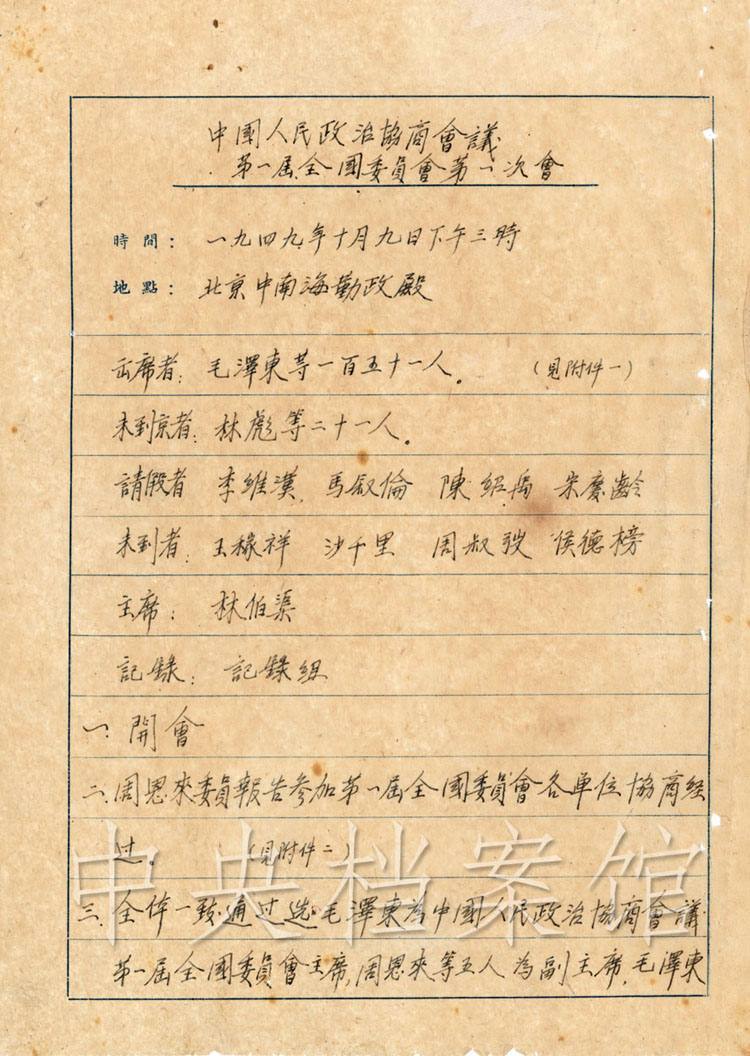 中國人民政治協商會議
第一届全國委員會第一次會
時間：一九四九年十月九日下午三時
地點：北京中南海勤政殿
出席者：毛澤東等一百五十一人。（見附件一）
未到京者：林彪等二十一人。
請假者 李維漢 馬叙倫 陳紹禹 宋慶齡
未到者：王稼祥 沙千里 周叔弢 侯德榜
主席：林伯渠
記錄：記錄組
一、開會
二、周恩來委員報告参加第一届全國委員會各單位協商経
过。（見附件二）
中央档案馆
三、全体一致通过选毛澤東為中國人民政治協商會議
第一届全國委員會主席，周恩來等五人為副主席，毛澤東